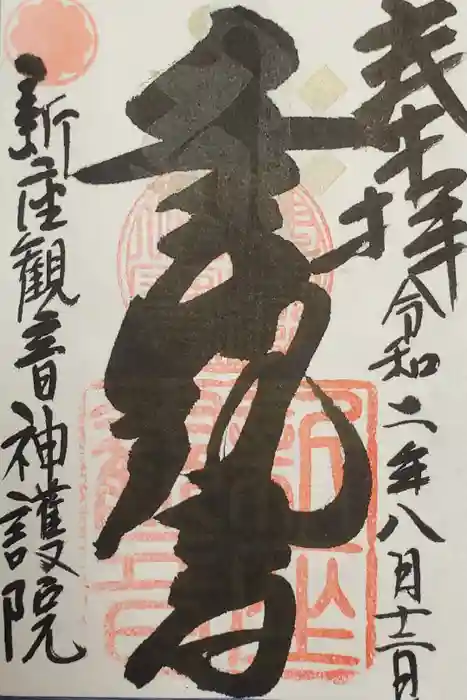 奉拝
令和二年八月十二日
観音
新座観音神護院